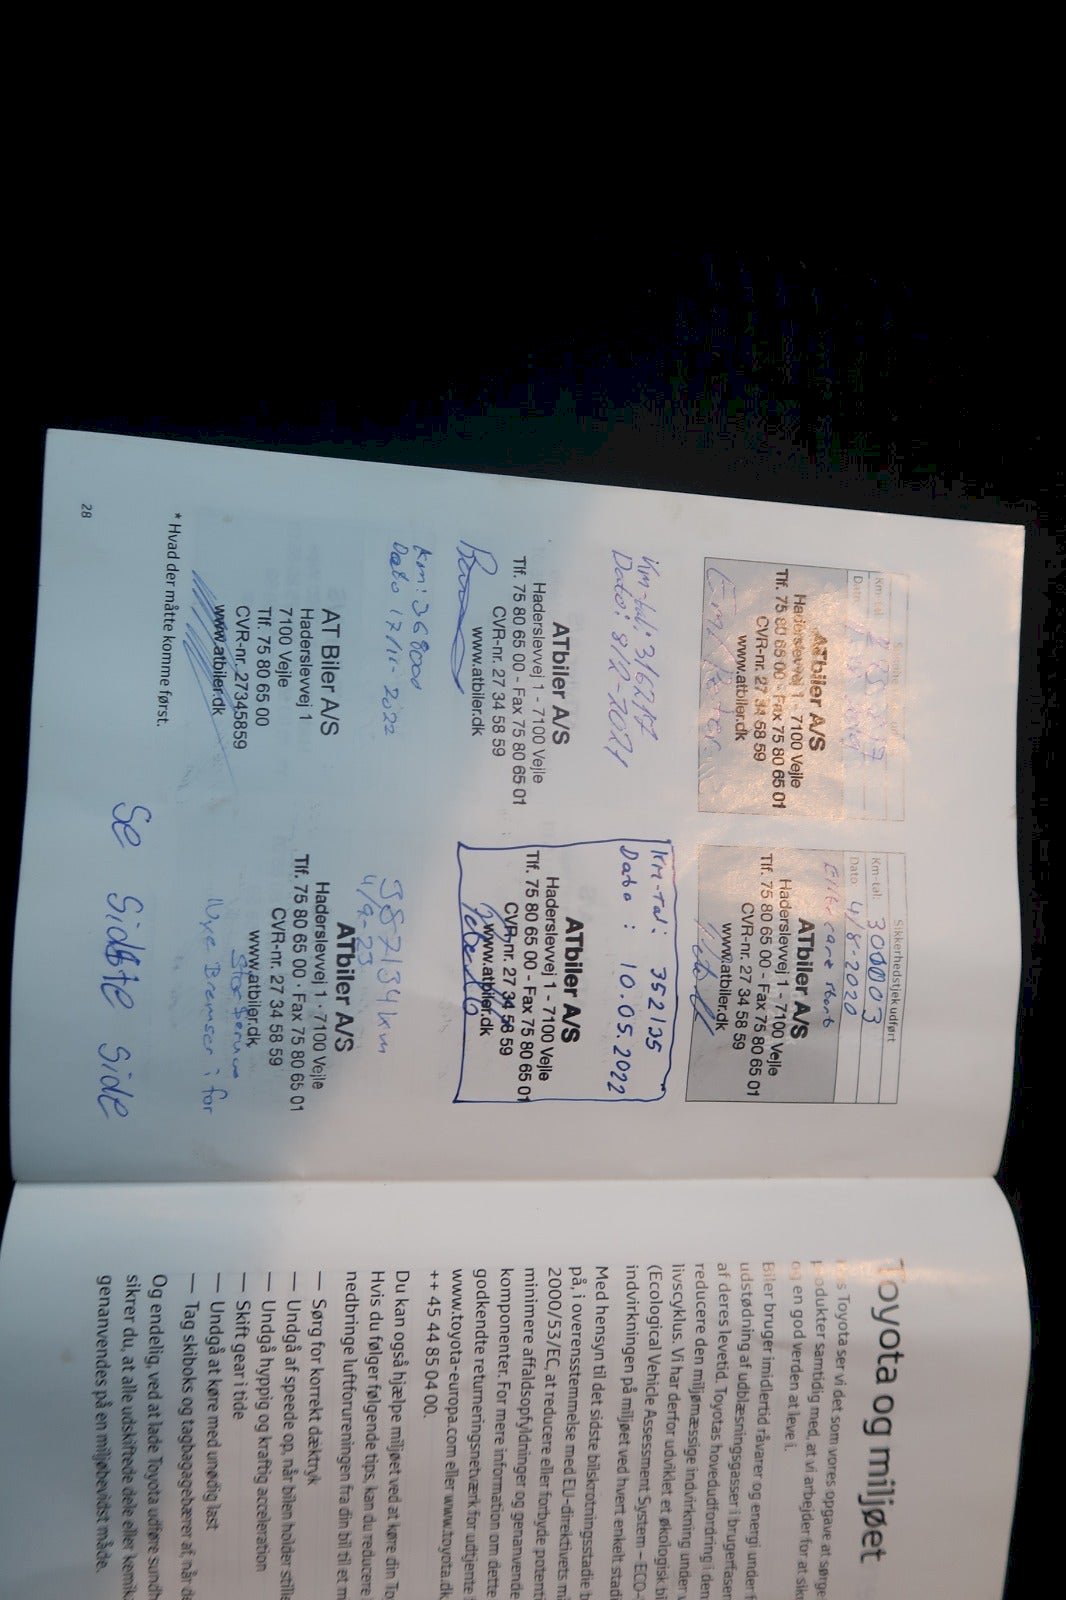 Km-tal:
Dato
ATbiler A/S
Haderslevvej 1 - 7100 Vejle
Tlf. 75 80 65 00 - Fax 75 80 65 01
CVR-nr. 27 34 58 59
www.atbiler.dk
Sikkerhedstjek udført
Km-tal: 300003
Dato 4/8-2020
ATbiler A/S
Haderslevvej 1 - 7100 Vejle
Tlf. 75 80 65 00 - Fax 75 80 65 01
CVR-nr. 27 34 58 59
www.atbiler.dk
Km-tal:
Dato: 9/12-2021
ATbiler A/S
Haderslevvej 1 - 7100 Vejle
Tlf. 75 80 65 00 - Fax 75 80 65 01
CVR-nr. 27 34 58 59
www.atbiler.dk
Km-Tal: 352135
Dato: 10.05.2022
ATbiler A/S
Haderslevvej 1 - 7100 Vejle
Tlf. 75 80 65 00 - Fax 75 80 65 01
CVR-nr. 27 34 58 59
www.atbiler.dk
Km: 368000
Dato 17/11-2022
AT Biler A/S
Haderslevvej 1
7100 Vejle
Tlf. 75 80 65 00
CVR-nr. 27345859
www.atbiler.dk
387134 km
4/9-23
ATbiler A/S
Haderslevvej 1 · 7100 Vejle
Tlf. 75 80 65 00 · Fax 75 80 65 01
CVR-nr. 27 34 58 59
www.atbiler.dk
Stor Service
Nye Bremser i for
* Hvad der måtte komme først.
Se Sidste Side
28
Toyota og miljøet
Toyota ser vi det som vores opgave at sørge
produkter samtidig med, at vi arbejder for at
og en god verden at leve i.
Biler bruger imidlertid råvarer og energi under
udstødning af udblæsningsgasser i brugerfasen
af deres levetid. Toyotas hovedudfordring i den
reducere den miljømæssige indvirkning under
livscyklus. Vi har derfor udviklet et økologisk
(Ecological Vehicle Assessment System – ECO-
indvirkningen på miljøet ved hvert enkelt
Med hensyn til det sidste bilskrotningsstadie
på, i overensstemmelse med EU-direktivets
2000/53/EC, at reducere eller forbyde
minimere affaldsopfyldninger og
komponenter. For mere information om dette
godkendte returneringsnetværk for udtjente
www.toyota-europa.com eller www.toyota.dk
++ 45 44 85 04 00.
Du kan også hjælpe miljøet ved at køre din
Hvis du følger følgende tips, kan du reducere
nedbringe luftforureningen fra din bil til et
— Sørg for korrekt dæktryk
— Undgå af speede op, når bilen holder stille
— Undgå hyppig og kraftig acceleration
— Skift gear i tide
— Undgå at køre med unødig last
— Tag skiboks og tagbagagebærer af, når
Og endelig, ved at lade Toyota udføre
sikrer du, at alle udskiftede dele eller
genanvendes på en miljøbevidst måde.